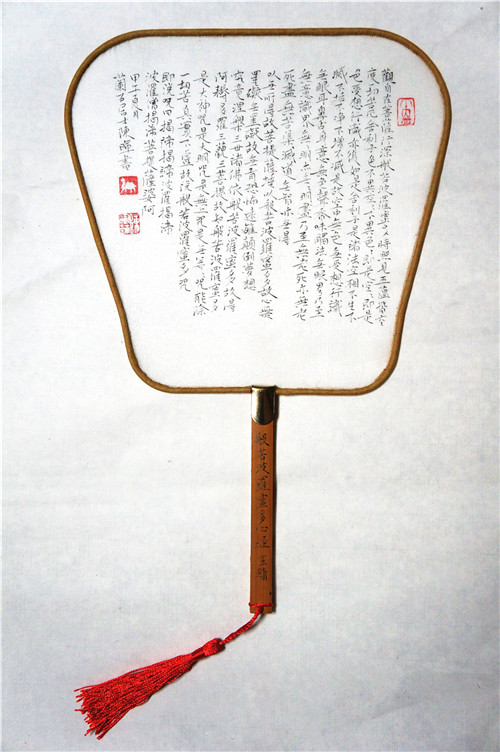 觀自在菩薩行深般若波羅蜜多時照見五蘊皆空
度一切苦厄舍利子色不異空空不異色色即是空空即是
色受想行識亦復如是舍利子是諸法空相不生不
滅不垢不淨不增不減是故空中無色無受想行識
無眼耳鼻舌身意無色聲香味觸法無眼界乃至
無意識界無無明亦無無明盡乃至無老死亦無老
死盡無苦集滅道無智亦無得
以無所得故菩提薩埵依般若波羅蜜多故心無
罣礙無罣礙故無有恐怖遠離顛倒夢想
究竟涅槃三世諸佛依般若波羅蜜多故得
阿耨多羅三藐三菩提故知般若波羅蜜多
是大神咒是大明咒是無上咒是無等等咒能除
一切苦真實不虛故說般若波羅蜜多咒
即說咒曰揭諦揭諦波羅揭諦
波羅僧揭諦菩提薩婆訶
甲午夏月
居士陳暉書
般若波羅蜜多心經